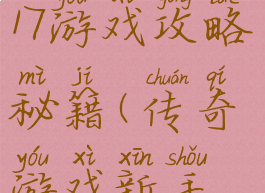 yóu xì gōng lüè
17游戏攻略
mì jí chuán qí
秘籍(传奇
yóu xì xīn shǒu
游戏新手